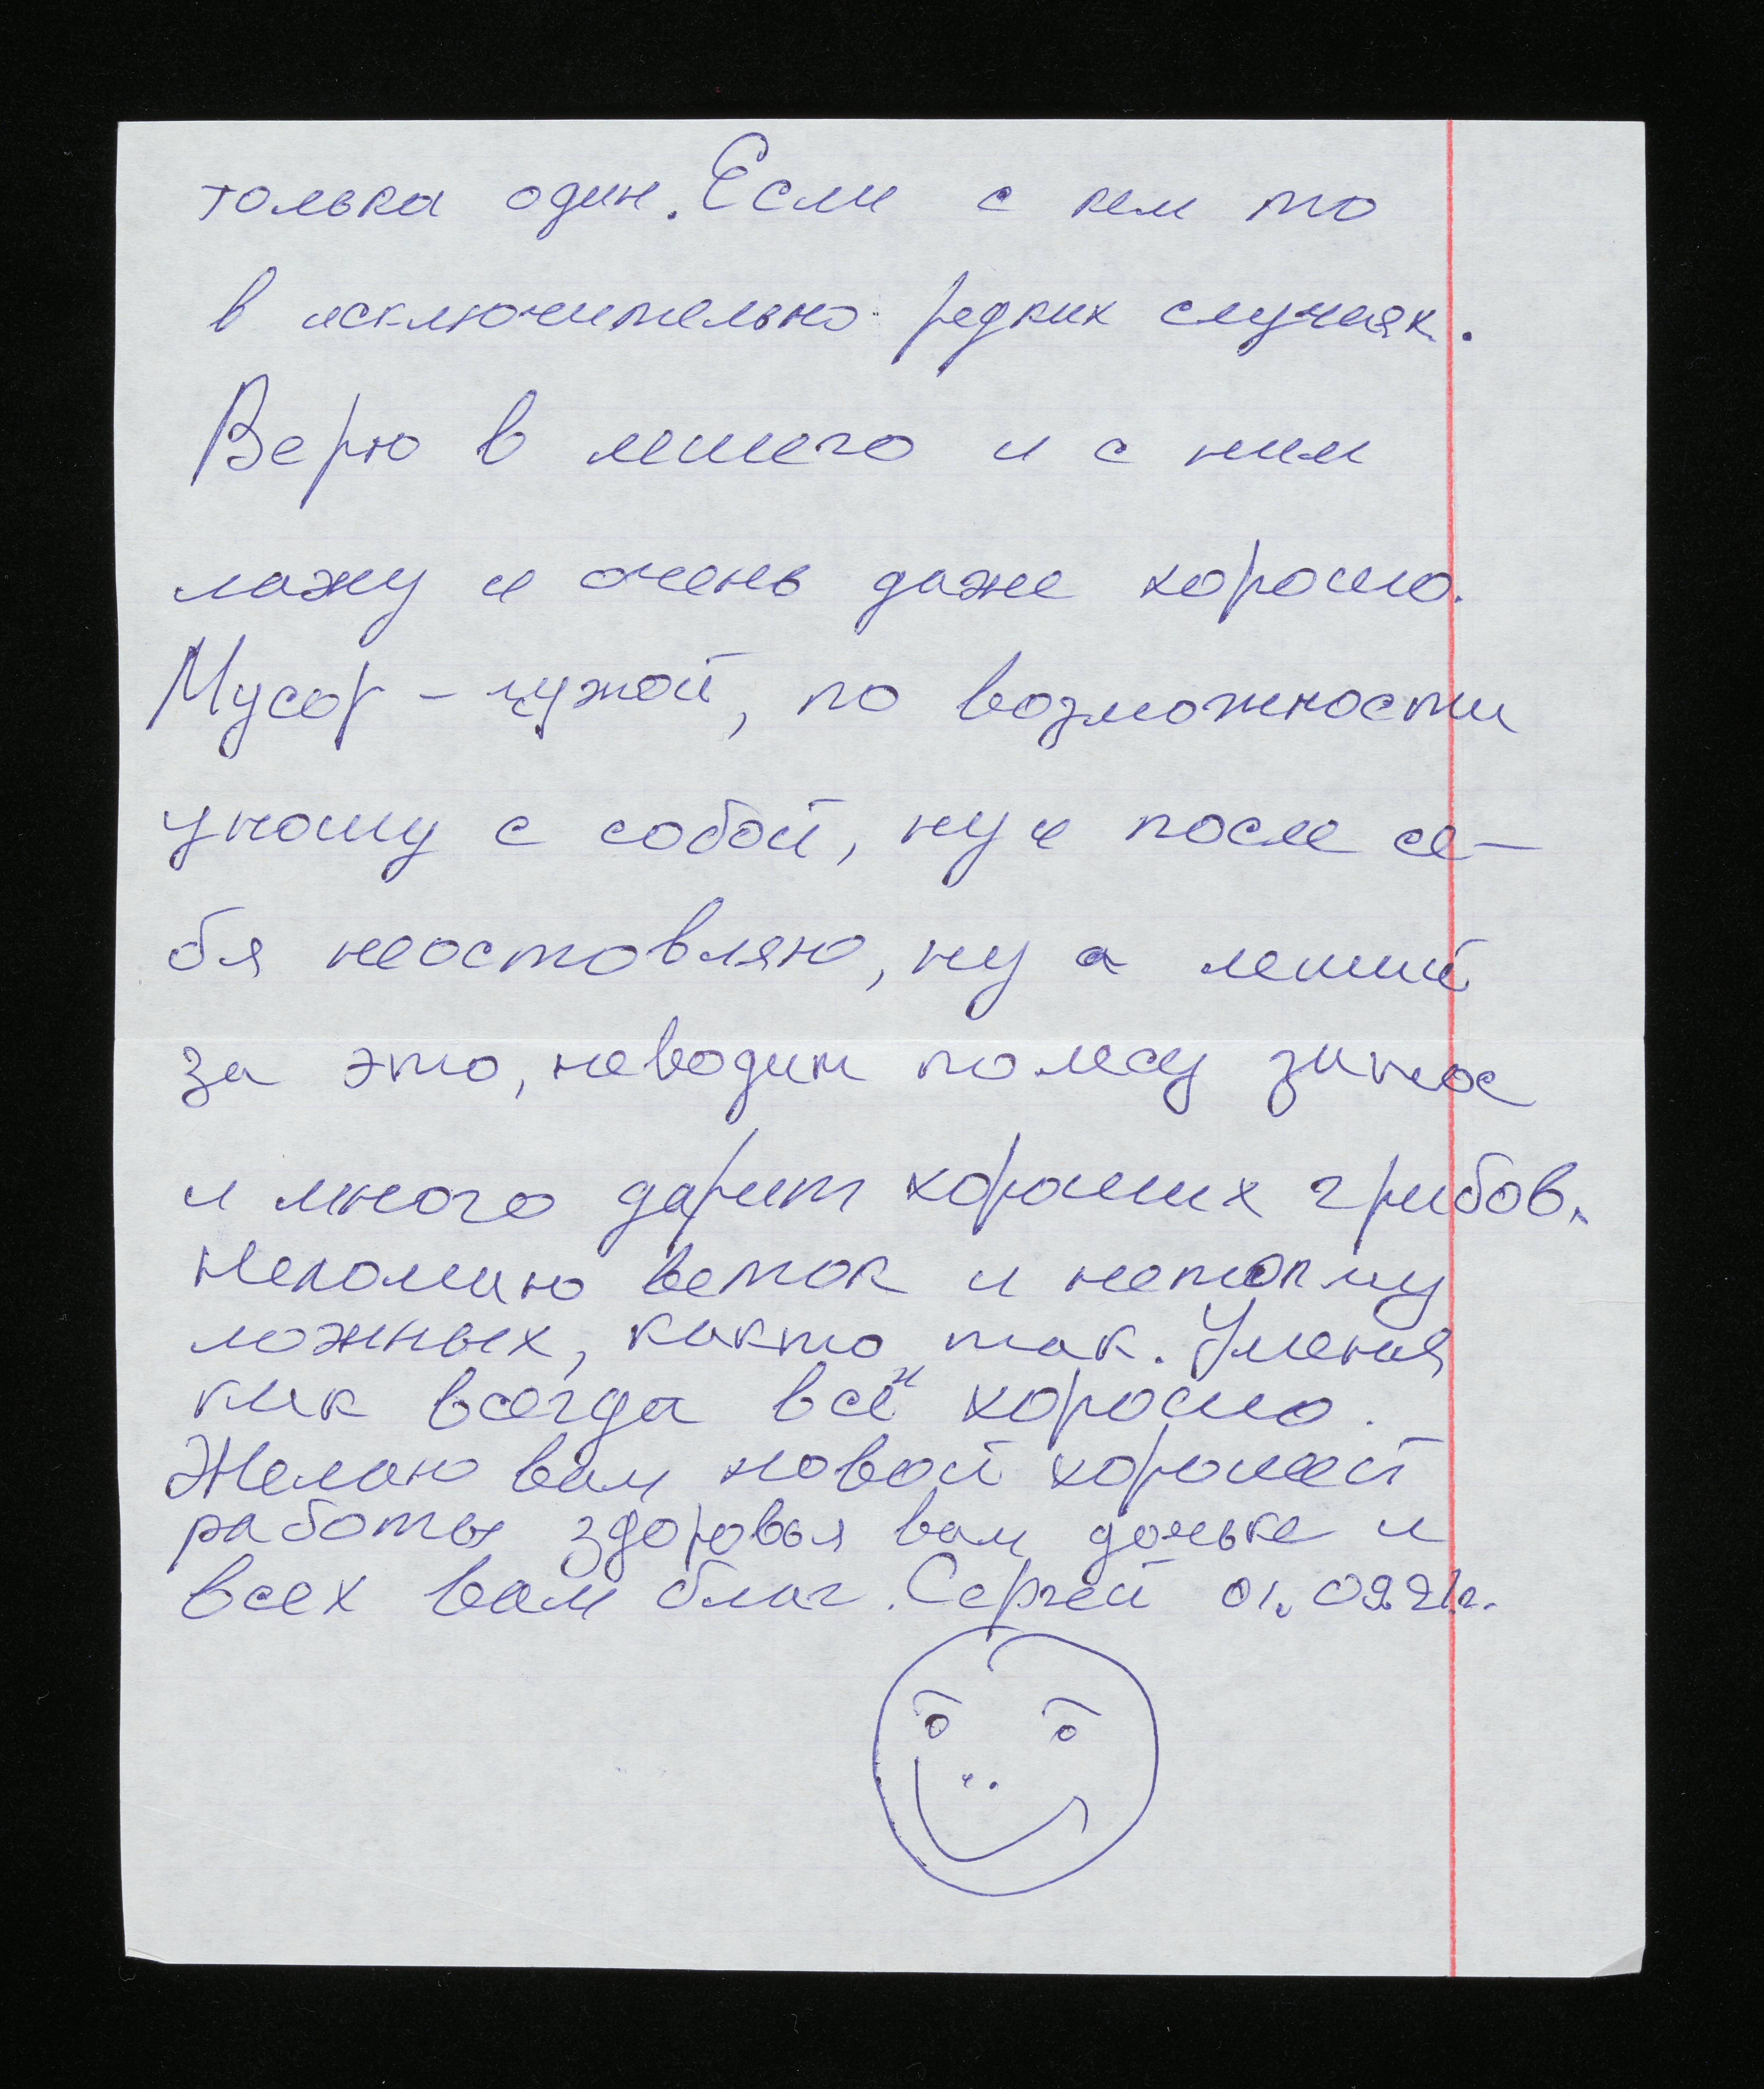 только один. Если с кем то
в исключительно редких случаях.
Верю в лешего и с ним
лажу и очень даже хорошо.
Мусор - чужой, по возможности
уношу с собой, ну и после се-
бя неоставляю, ну а леший
за это, неводит полесу зинос
и много дарит хороших грибов.
Неломаю веток и нетопчу
ложных, както так. Уменя
как всегда всё и хорошо.
Желаю вам новой хорошей
работы здоровья вам доньке и
всех вам благ. Сергей 01.09.21г.